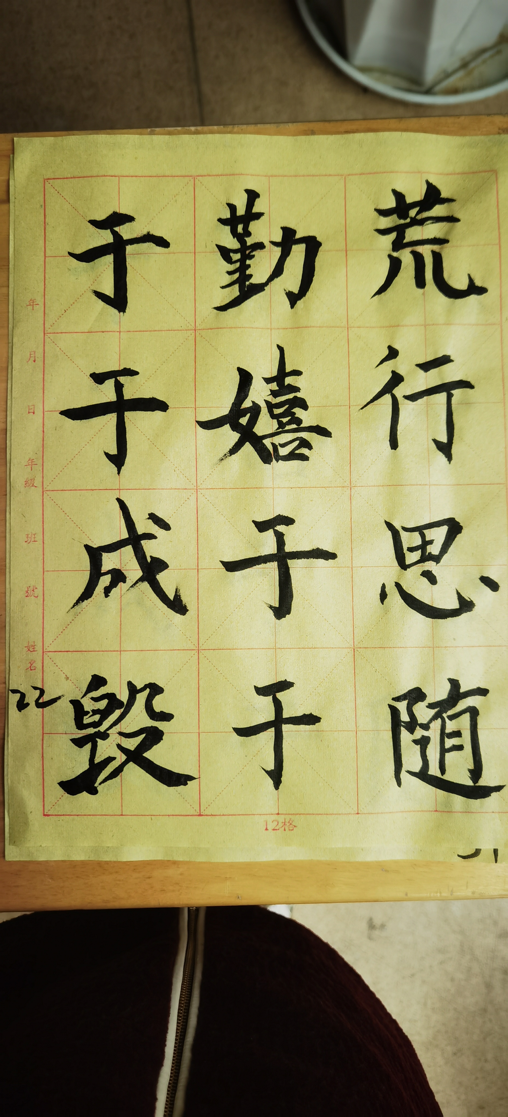 于勤荒
于嬉行
成于思
毁于随
年 月 日
年級 班 號
姓名
22
12格